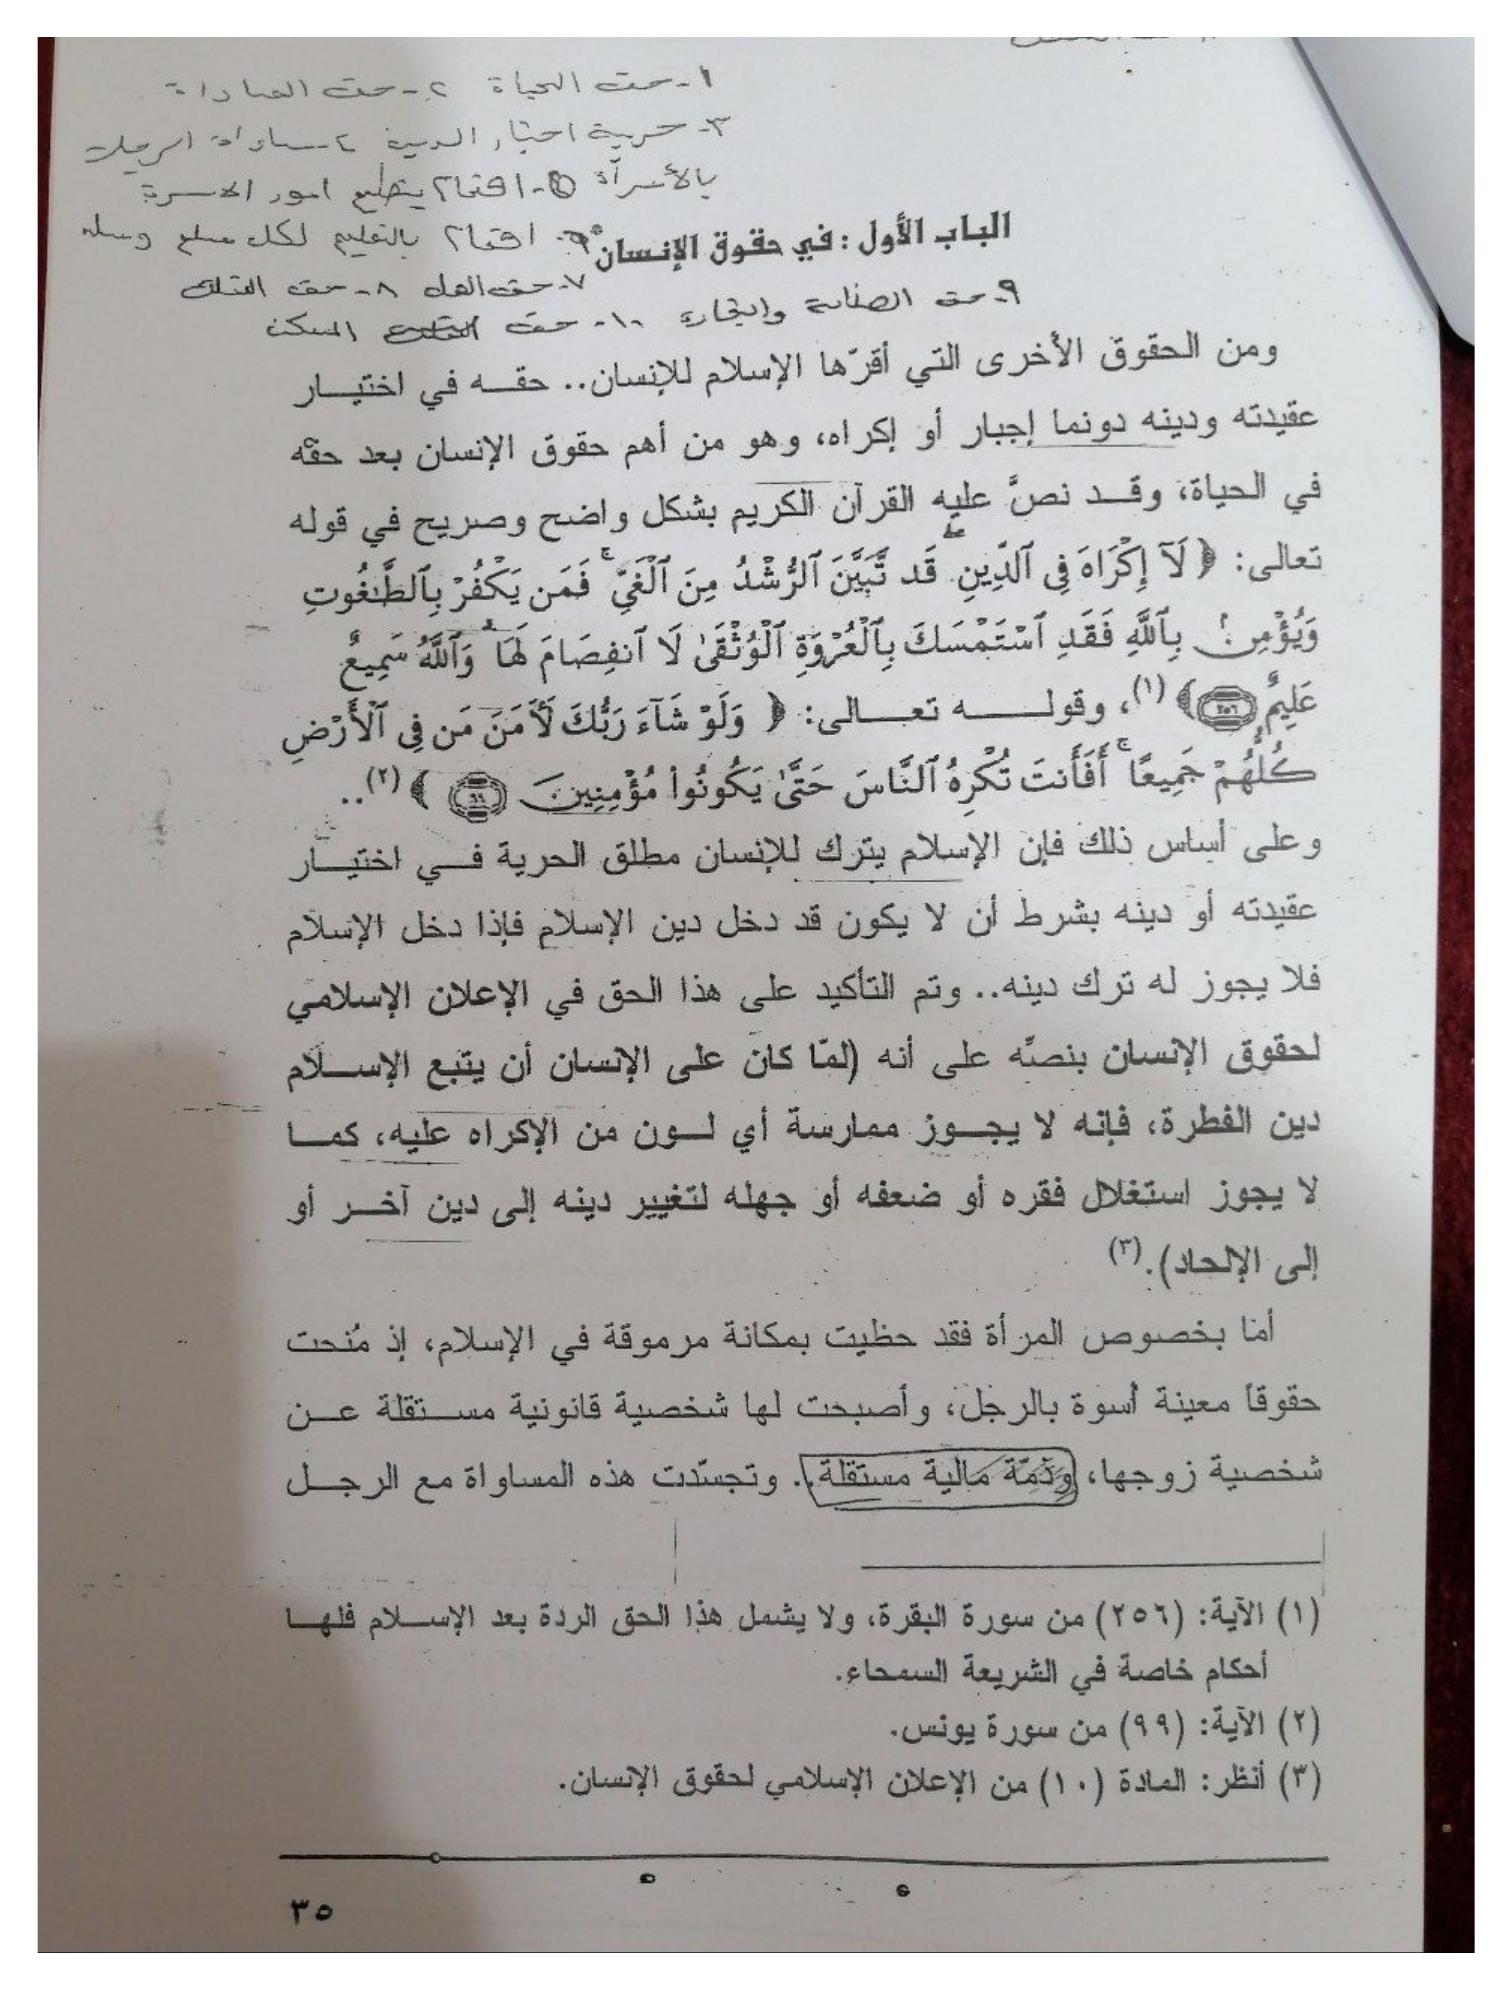 ١- حق الحياة ٢- حق المساواة
٣- حرية اختيار الدين ٤- مساواة الرجل
بالأمرأة ٥- اهتمام بتنظيم امور الاسرة
الباب الأول : في حقوق الإنسان ٦- اهتمام بالتعليم لكل مسلم ومسلمة
٧- حق العمل ٨- حق التملك
٩- حق الصناعة والتجارة ١٠- حق السكن
ومن الحقوق الأخرى التي أقرّها الإسلام للإنسان.. حقه في اختيار
عقيدته ودينه دونما إجبار أو إكراه، وهو من أهم حقوق الإنسان بعد حقه
في الحياة، وقد نصَّ عليه القرآن الكريم بشكل واضح وصريح في قوله
تعالى: ﴿ لَآ إِكْرَاهَ فِى ٱلدِّينِ ۖ قَد تَّبَيَّنَ ٱلرُّشْدُ مِنَ ٱلْغَىِّ ۚ فَمَن يَكْفُرْ بِٱلطَّٰغُوتِ
وَيُؤْمِنۢ بِٱللَّهِ فَقَدِ ٱسْتَمْسَكَ بِٱلْعُرْوَةِ ٱلْوُثْقَىٰ لَا ٱنفِصَامَ لَهَا ۗ وَٱللَّهُ سَمِيعٌ
عَلِيمٌ ٢٥٦ ﴾(١)، وقوله تعالى: ﴿ وَلَوْ شَآءَ رَبُّكَ لَأٓمَنَ مَن فِى ٱلْأَرْضِ
كُلُّهُمْ جَمِيعًا ۚ أَفَأَنتَ تُكْرِهُ ٱلنَّاسَ حَتَّىٰ يَكُونُوا۟ مُؤْمِنِينَ ٩٩ ﴾(٢)..
وعلى أساس ذلك فإن الإسلام يترك للإنسان مطلق الحرية في اختيار
عقيدته أو دينه بشرط أن لا يكون قد دخل دين الإسلام فإذا دخل الإسلام
فلا يجوز له ترك دينه.. وتم التأكيد على هذا الحق في الإعلان الإسلامي
لحقوق الإنسان بنصّه على أنه (لمّا كان على الإنسان أن يتبع الإسلام
دين الفطرة، فإنه لا يجوز ممارسة أي لون من الإكراه عليه، كما
لا يجوز استغلال فقره أو ضعفه أو جهله لتغيير دينه إلى دين آخر أو
إلى الإلحاد).(٣)
أما بخصوص المرأة فقد حظيت بمكانة مرموقة في الإسلام، إذ مُنحت
حقوقاً معينة أسوة بالرجل، وأصبحت لها شخصية قانونية مستقلة عن
شخصية زوجها، وَذِمّة مَالية مستقلة.. وتجسّدت هذه المساواة مع الرجل
(١) الآية: (٢٥٦) من سورة البقرة، ولا يشمل هذا الحق الردة بعد الإسلام فلها
أحكام خاصة في الشريعة السمحاء.
(٢) الآية: (٩٩) من سورة يونس.
(٣) أنظر: المادة (١٠) من الإعلان الإسلامي لحقوق الإنسان.
٣٥